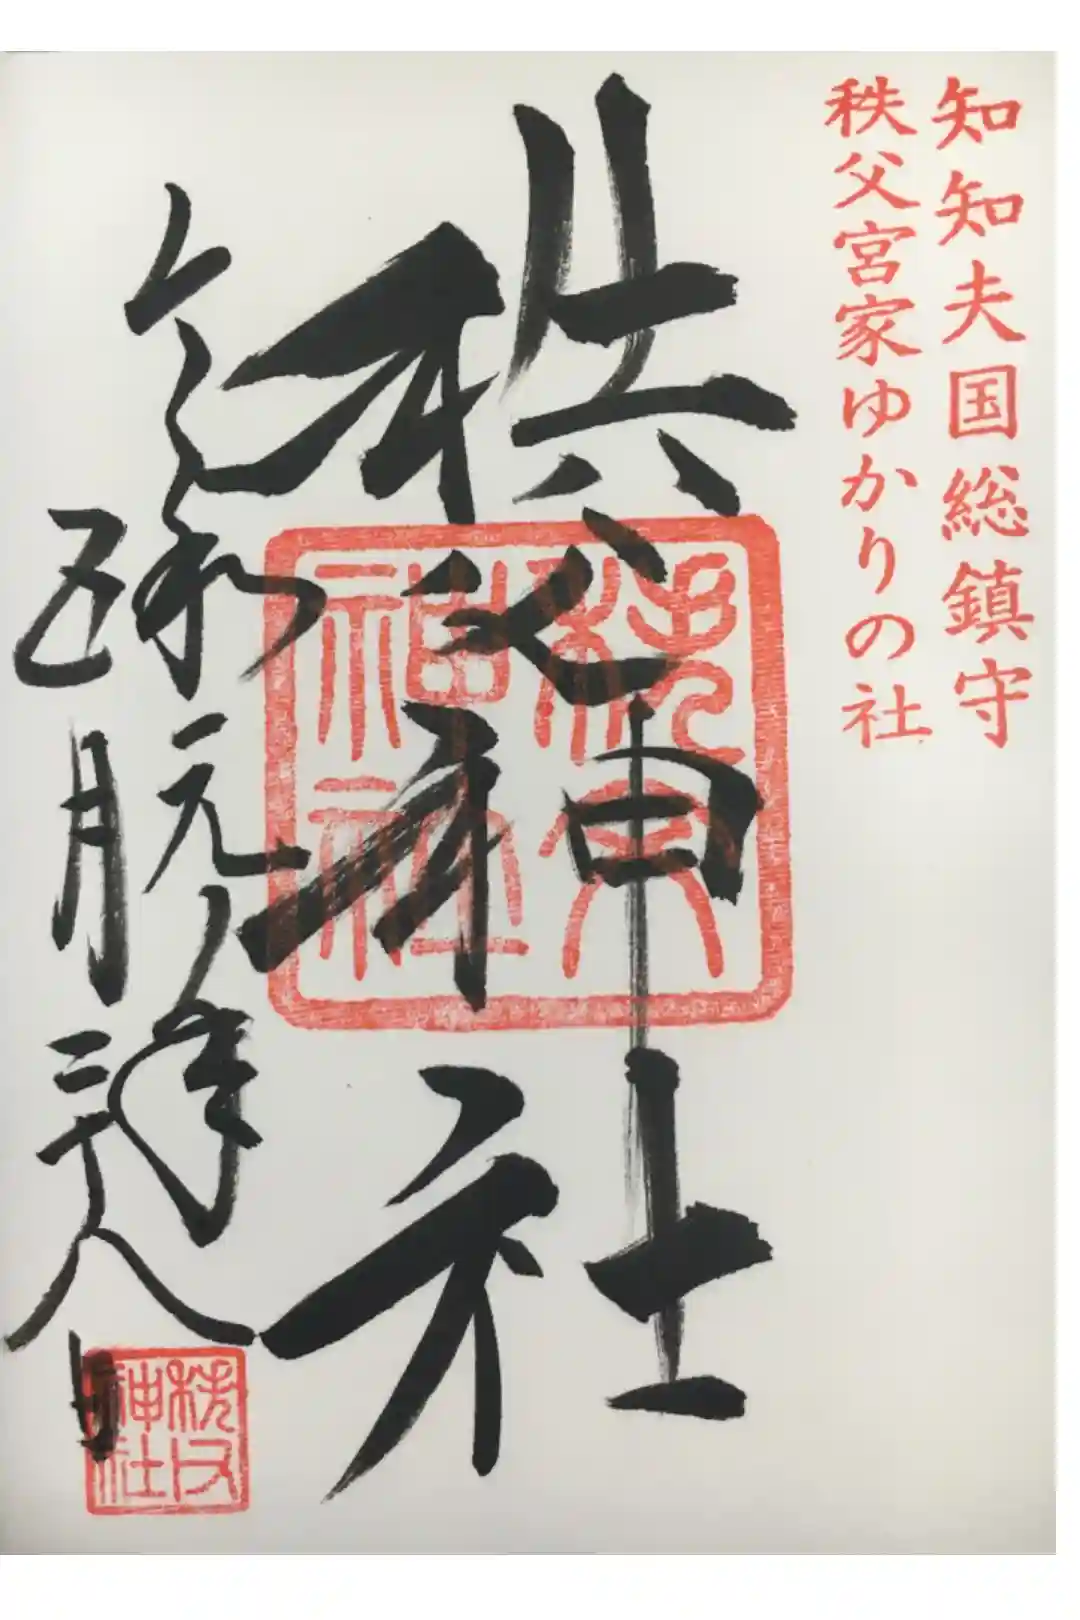 知知夫国総鎮守
秩父宮家ゆかりの社
秩父神社
秩父神社
令和元年
五月二十八日
秩父神社